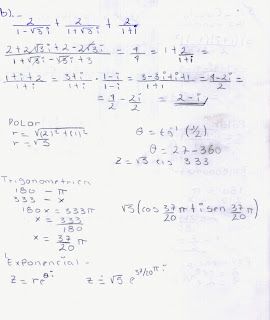 b).-
2/(1-√3i) + 2/(1+√3i) + 2/(1+i)
(2+2√3i+2-2√3i)/(1+√3i-√3i+3) = 4/4 = 1 + 2/(1+i) =
(1+i+2)/(1+i) = (3+i)/(1+i) · (1-i)/(1-i) = (3-3i+i+1)/(1+1) = (4-2i)/2
= 4/2 - 2i/2 = 2-i
Polar
r = √(2)²+(1)²
r = √5
θ = tg⁻¹ (1/2)
θ = 27-360
z = √5 cis 333
Trigonometrica
180 - π
333 - x
180x = 333π
x = 333/180
x = 37/20 π
√5 (cos 37/20 π + i sen 37/20 π)
Exponencial -
z = re^θi
z = √5 e^37/20πi